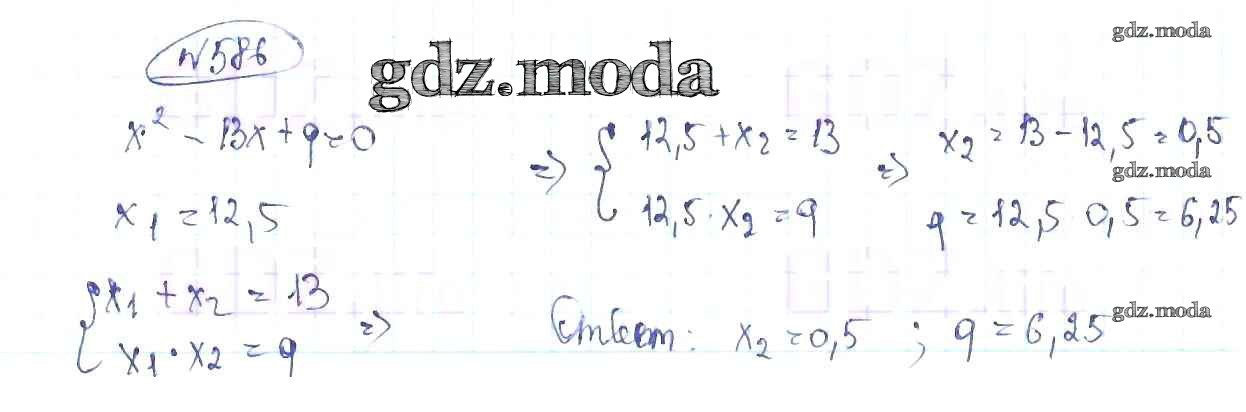 №586
gdz.moda
gdz.moda
x² - 13x + q = 0
x₁ = 12,5
{ x₁ + x₂ = 13
x₁ · x₂ = q =>
=> { 12,5 + x₂ = 13
12,5 · x₂ = q
=> x₂ = 13 - 12,5 = 0,5
gdz.moda
q = 12,5 · 0,5 = 6,25
gdz.moda
Ответ: x₂ = 0,5 ; q = 6,25